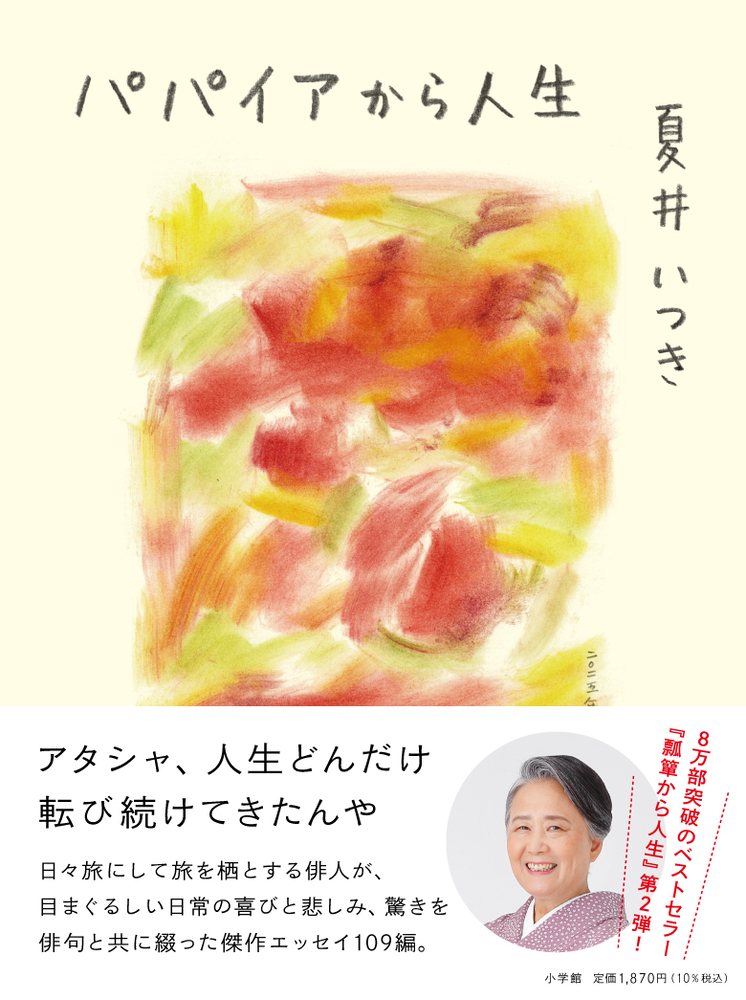 パパイアから人生
夏井いつき
二〇二五年
アタシャ、人生どんだけ
転び続けてきたんや
日々旅にして旅を栖とする俳人が、
目まぐるしい日常の喜びと悲しみ、驚きを
俳句と共に綴った傑作エッセイ109編。
8万部突破のベストセラー
『瓢箪から人生』第2弾!
小学館 定価1,870円(10%税込)